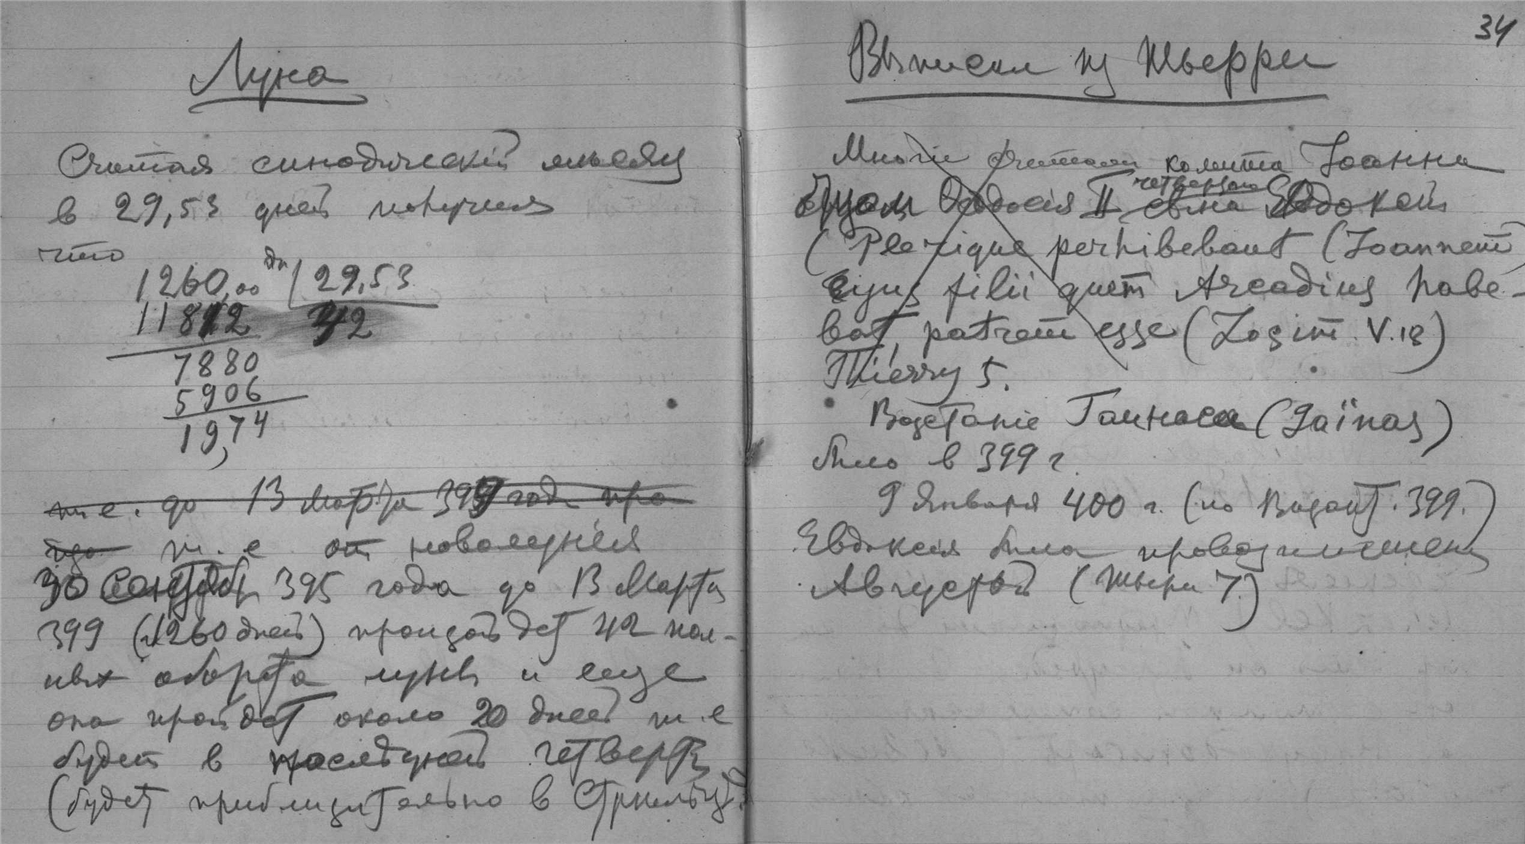 Луна
Считая синодическій месяц
в 29,53 дней получим
что
1260,00 дн | 29,53
11812 42
7880
5906
19,74
т. е. до 13 Марта 399 года про
т. е от новолунія
30 Сентября 395 года до 13 Марта
399 (1260 дней) пройдёт 42 пол-
ных оборота луны и еще
она пройдёт около 20 дней т. е
будет в последней четверти
(будет приблизительно в Стрельце)
34
Выписки из Тьерри
Многіе считали комита Іоанна
отцом Феодосія II четвертого сына Евдоксіи
(Plerique perhibebant (Joannem)
ejus filii quem Arcadius habe-
bat, patrem esse (Zosim. V. 18)
Thierry 5.
Возстаніе Гаинаса (Gaïnas)
было в 399 г.
9 Января 400 г. (по Визант. 399.)
Евдоксія была провозглашена
Августой (Тьери 7.)